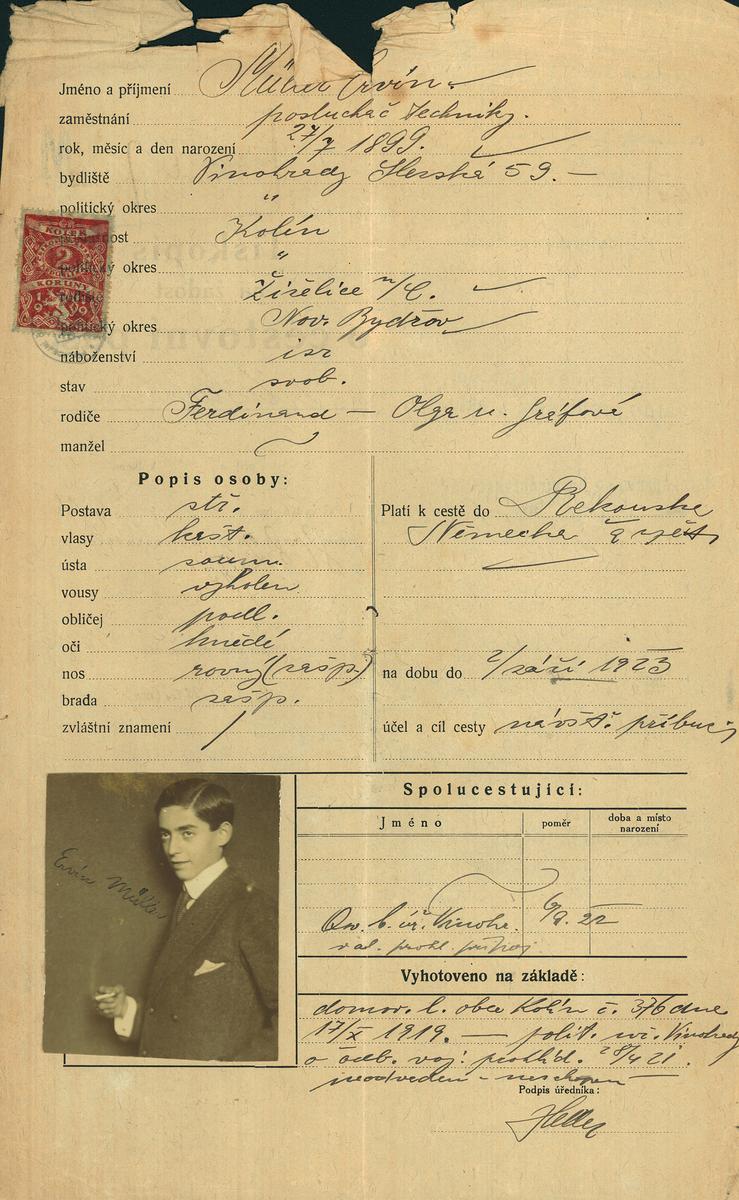 Jméno a příjmení Müller Ervín.
zaměstnání posluchač techniky.
rok, měsíc a den narození 27/7 1899.
bydliště Vinohrady Slezská 59. —
politický okres "
Kolín
politický okres "
Žiželice n/C.
politický okres Nov. Bydžov
náboženství isr
stav svob.
rodiče Ferdinand — Olga u. Gréfové
manžel
Popis osoby:
Postava stř.
vlasy kašt.
ústa soum.
vousy vyholen
obličej podl.
oči hnědé
nos rovný (zašp.)
brada zašp.
zvláštní znamení /
Platí k cestě do Rakouska
Německa a zpět
na dobu do 2/září 1923
účel a cíl cesty návšt. příbuz
KOLEK
2
KORUNY
Ervín Müller
Spolucestující:
Jméno
poměr
doba a místo narození
Vinohr. 6/9. 22
Vyhotoveno na základě:
domov. l. obce Kolín č. 376 dne
17/X 1919. — polit. Vinohrady
o odb. voj. prohlíd. 21.
neodveden - neschopen
Podpis úředníka: